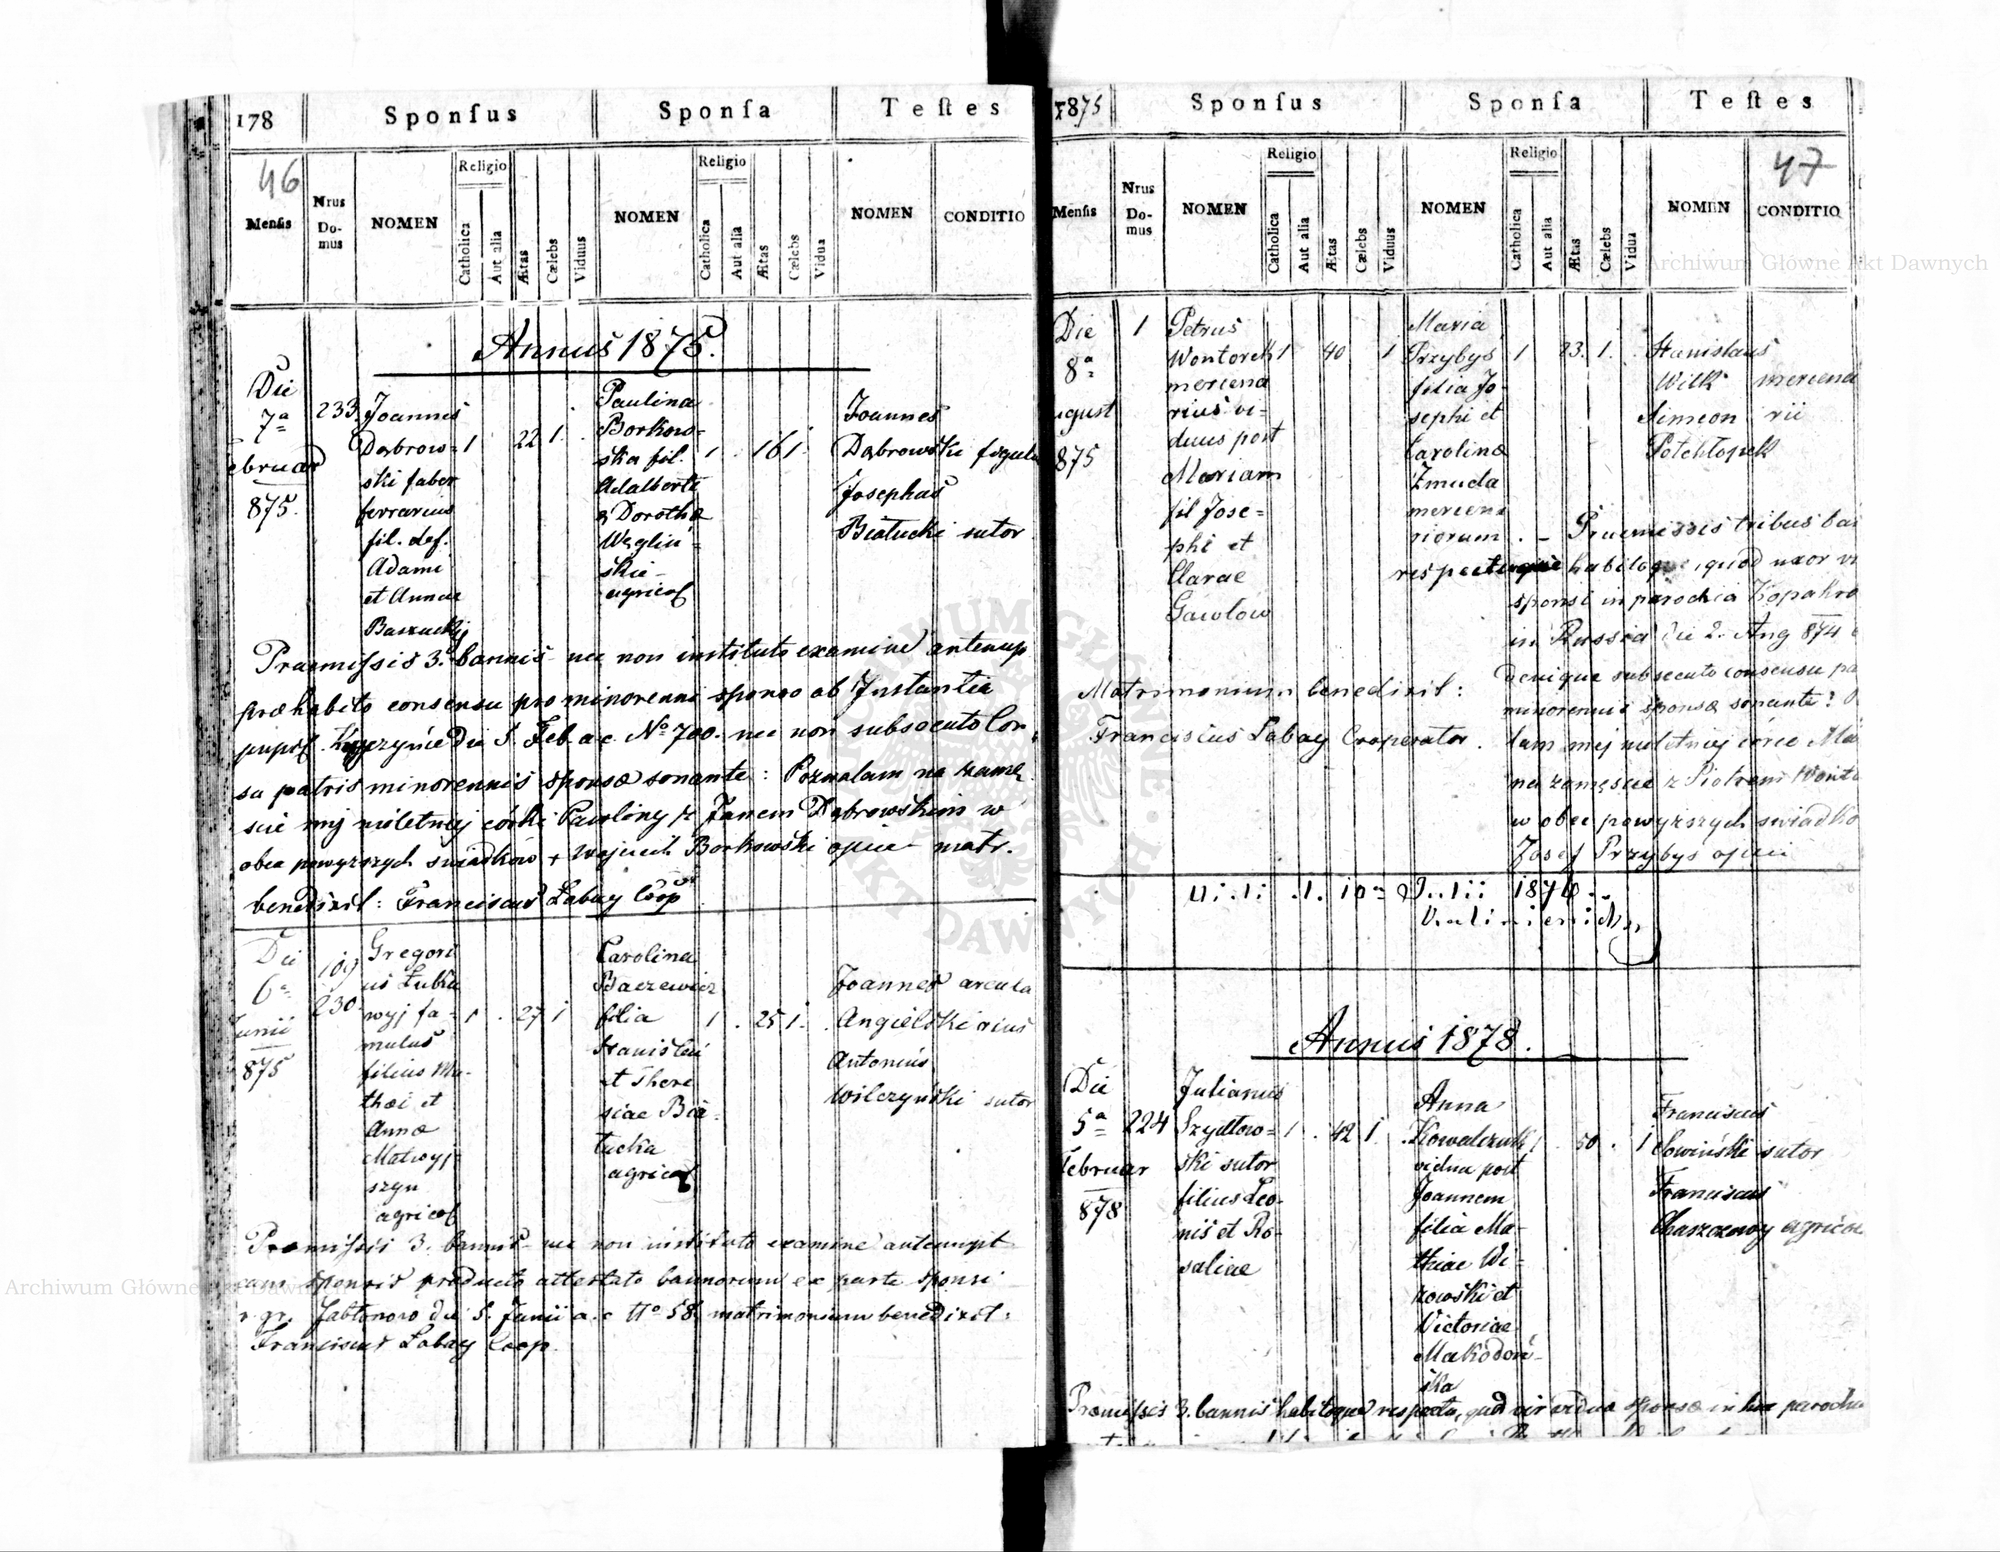 178 Sponſus Sponſa Teſtes
46
Menſis Nrus Do-mus NOMEN Religio Catholica Aut alia Ætas Cælebs Viduus NOMEN Religio Catholica Aut alia Ætas Cælebs Vidua NOMEN CONDITIO
Annus 1875.
Die
7a
ebruar
875.
233.
Joannes
Dąbrow-
ski faber
ferrarius
fil. def.
Adami
et Annae
1 22 1.
Paulina
Borkow-
ska fil.
Adalberti
& Dorothæ
Węgliń-
skie
agricol
1 16 1.
Joannes
Dąbrowski figulu
Josephus
Białucki sutor
Praemiſsis 3. bannis nec non instituto examine antenup
præhabito consensu pro minorenni sponso ab Instantia
pupil. die 5. Feb. a.c. No 700. nec non subsecuto Con
su patris minorennis sponsæ sonante: Pozwalam na zamę
ście mej nieletniej córki Pauliny z Janem Dąbrowskim w
obec powyższych świadków + Wojciech Borkowski ojciec matr.
benedixit: Franciscus Labay Coop
Die
6a
Junii
875
109
230.
Gregori
us Łubka
wyj fa-
mulus
filius Ma-
thæi et
Annæ
Matwyj
szyn
agricol
1 . 27 1
Carolina
Baczewicz
filia
Stanislai
et There
siae Bia-
łucka
agricol
1 . 25 1.
Joannes arcula
Angielski rius
Antonius
Wilczyński sutor
Præmiſsis 3. bannis nec non instituto examine antenupt
sponsis producto attestato bannorum ex parte sponsi
r. gr. Jabłonow die 5. Junii a.c. No 58 matrimonium benedixit:
Franciscus Labay Coop.
1875 Sponſus Sponſa Teſtes
47
Menſis Nrus Do-mus NOMEN Religio Catholica Aut alia Ætas Cælebs Viduus NOMEN Religio Catholica Aut alia Ætas Cælebs Vidua NOMEN CONDITIO
Die
8a
ugust
875
1
Petrus
Wontorek
mercena
rius vi-
duus post
Mariam
fil Jose-
phi et
Clarae
Gawlow
1 40 1
Maria
Przybyś
filia Jo-
sephi et
Carolinæ
Żmuda
mercena
riorum
1 23. 1.
Stanislaus
Wilk mercena
Simeon rii
Praemissis tribus ban
respectu habito, quod uxor
sponsi in parochia
in Russia die 2. Aug 874
denique subsecuto consensu pa
minorennis sponsæ sonante:
lam mej nieletniej córce Ma
na zamęście z Piotrem Wonto
w obec powyższych świadkó
Josef Przybyś ojciec
Matrimonium benedixit:
Franciscus Labay Cooperator.
1876
Annus 1878.
Die
5a
Februar
878
224
Julianus
Szydłow-
ski sutor
filius Leo-
nis et Ro-
saliae
1 . 42 1.
Anna
Kowalczuk
vidua post
Joannem
filia Ma-
thiae Wi-
zowski et
Victoriae
Makodoń-
ska
1 . 50 . 1
Franciscus
Sowiński sutor
Franciscus
Chaszczowy agricol
Præmiſsis 3. bannis habitoque respectu, quod vir viduæ sponsæ in hac parochia
Archiwum Główne Akt Dawnych
Archiwum Główne Akt Dawnych
ARCHIWUM GŁÓWNE AKT DAWNYCH